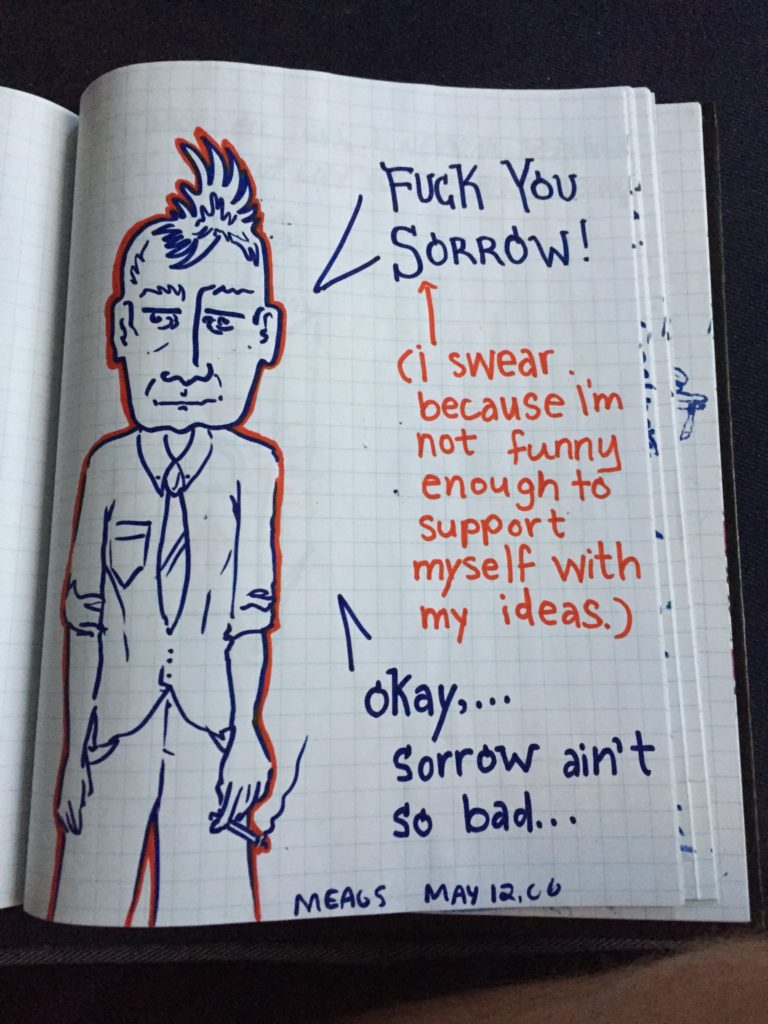 FUCK YOU
SORROW!
(i swear
because I'm
not funny
enough to
support
myself with
my ideas.)
okay,...
sorrow ain't
so bad...
MEAGS MAY 12, 06